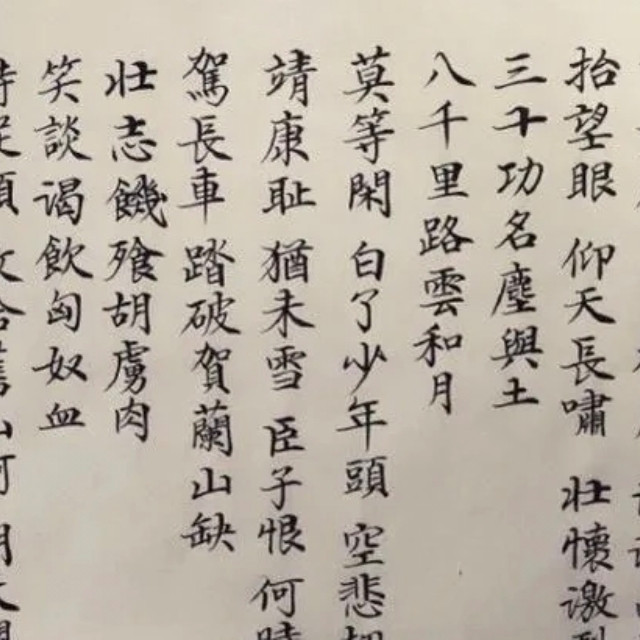 抬望眼 仰天長嘯 壯懷激
三十功名塵與土
八千里路雲和月
莫等閑 白了少年頭 空悲
靖康耻 猶未雪 臣子恨 何
駕長車踏破賀蘭山缺
壯志饑飱胡虜肉
笑談渴飲匈奴血